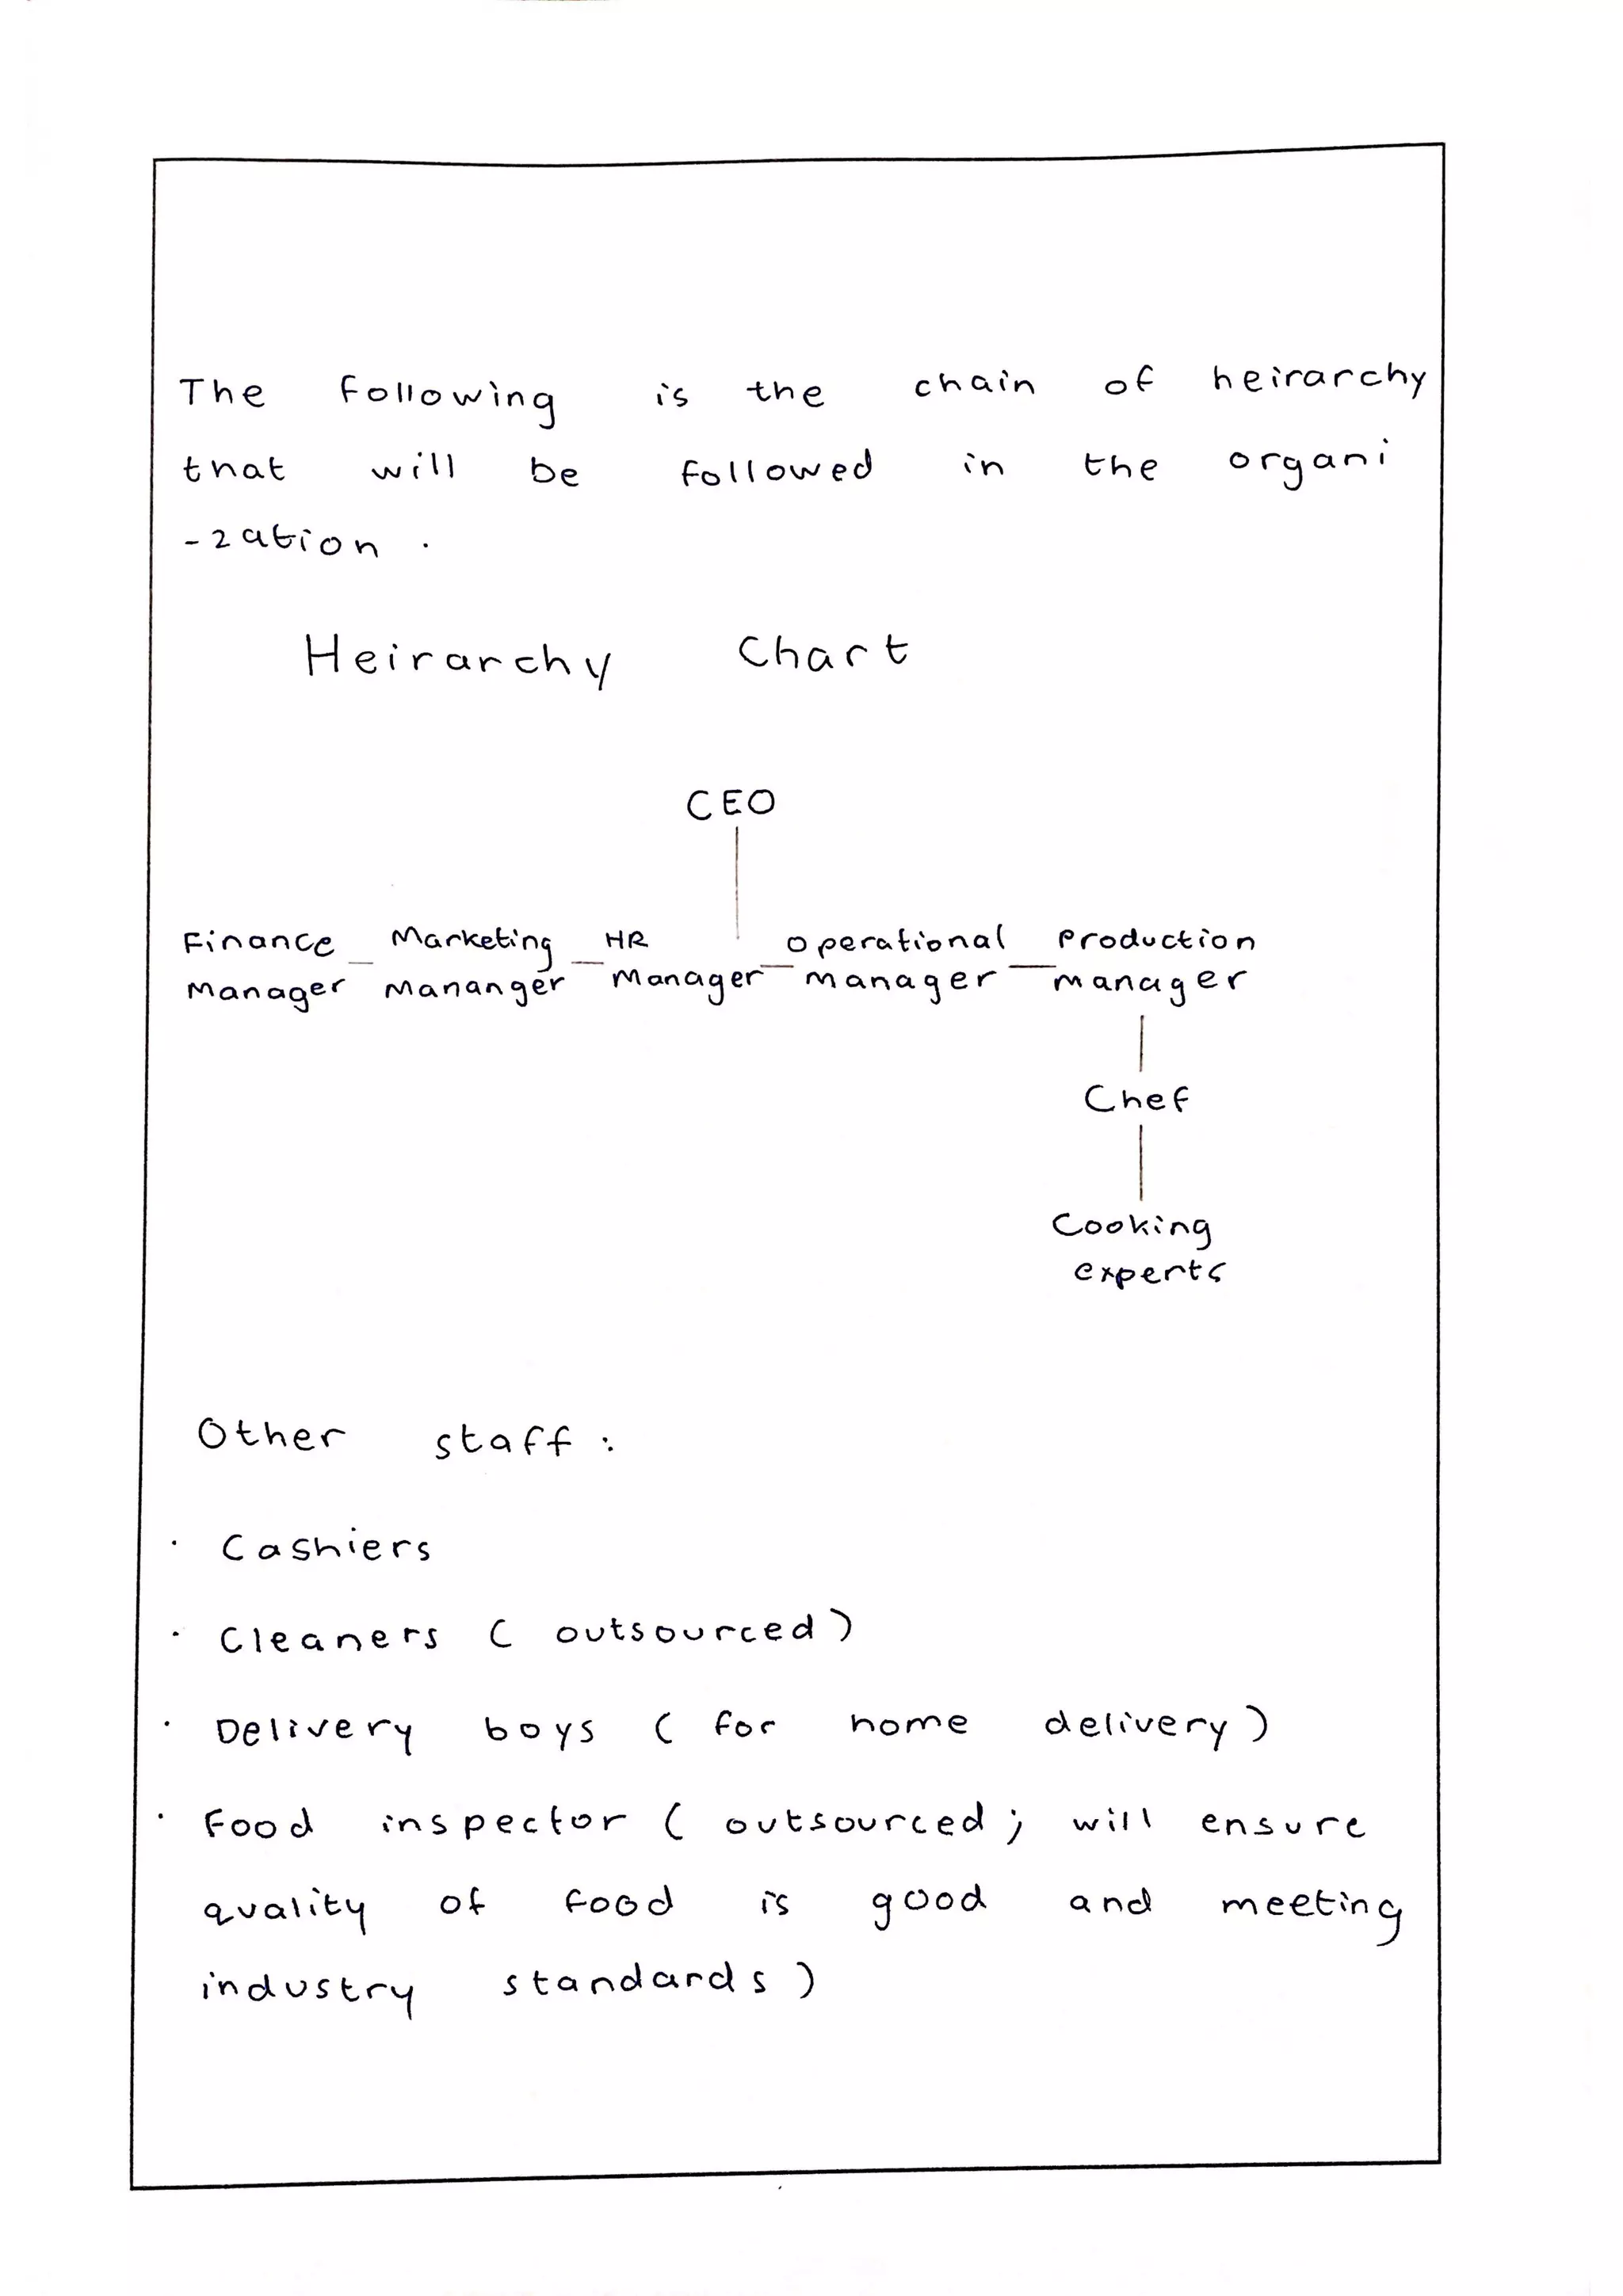 The following is the chain of heirarchy
that will be followed in the organi
-zation .
Heirarchy Chart
CEO
Finance _ Marketing _ HR operational _ Production
Manager Mananger Manager manager manager
Chef
Cooking
experts
Other staff :
· Cashiers
· Cleaners ( outsourced )
· Delivery boys ( for home delivery )
· Food inspector ( outsourced ; will ensure
quality of food is good and meeting
industry standards )